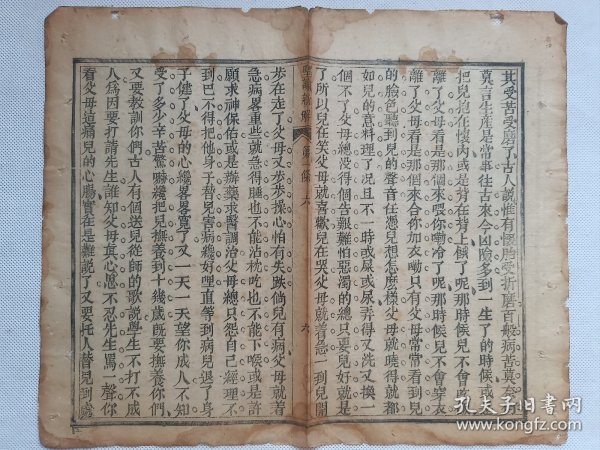 其受苦受磨了古人說惟有懷胎受折磨百般病苦真
莫言生產是常事往古來今凶險多到一生了的時候或
把兒抱在懷內或是背在背上餓了呢那時候兒不會
離了父母看是那個來喂你嘞冷了呢那時候兒不會穿衣
離了父母看是那個來合你加衣嘞只有父母常常看到兒
的臉色聽到兒的聲音任憑兒想怎麼樣父母就曉得就都
如兒的意料理了況且不一時或屎或尿弄得又洗又換一
個不了父母總沒得個告艱難怕惡濁的總只要兒好就是
了所以兒在笑父母就喜歡兒在哭父母就着急一到兒開
聖諭 第一條 六
六
步在走了父母又步步操心怕有失跌倘兒有病父母就着
急病畧重些就急得睡也不能沾枕吃也不能下喉或是許
願求神保佑或是辦藥求醫調治父母總只怨自己經理不
到巴不得把他身子替兒害病纔好哩直等到病兒退了身
子健了父母的心纔畧畧寬了又一天一天望你成人不知
受了多少辛苦驚嚇纔把兒撫養到十幾歲旣要撫養你們
又要教訓你們古人有個送兒從師的歌說學生不打不成
人爲因要打請先生誰知父母眞心愿不忍先生罵一聲你
看父母這痛兒的心腸實在是難說了又要托人替兒到處
孔夫子旧书网
book.kongfz.com